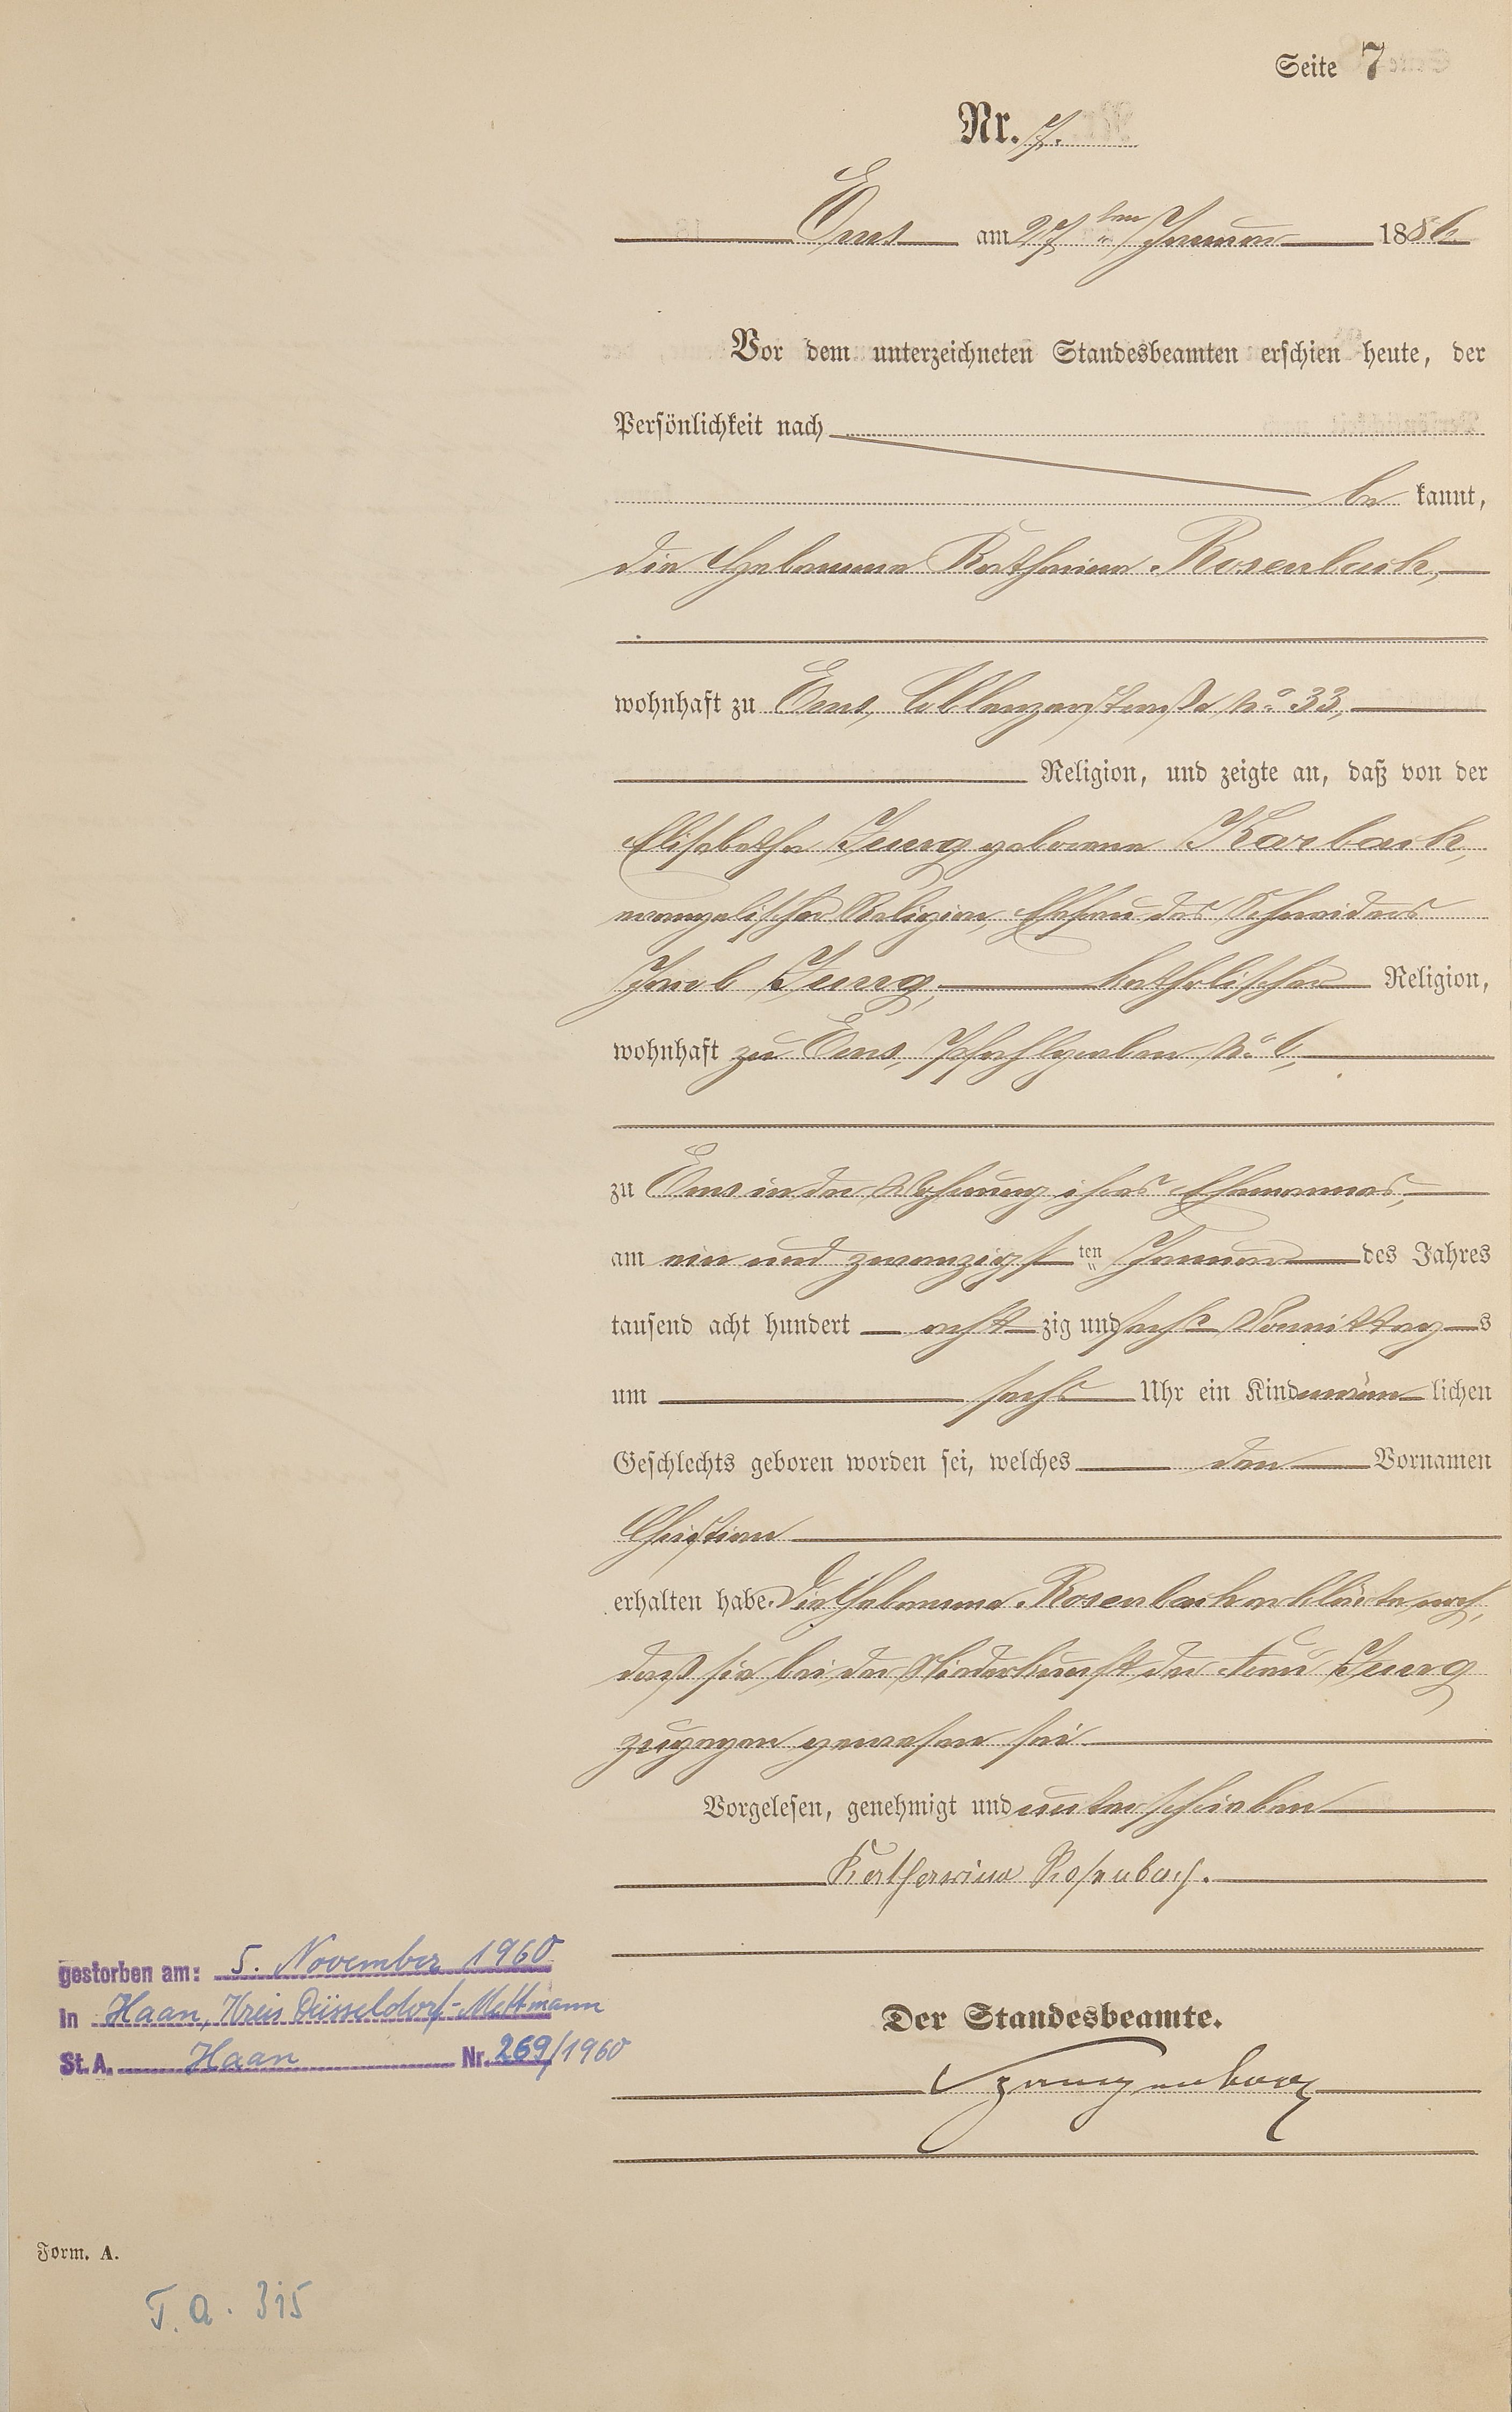 Seite 7
Nr. 7.
Ems am 27ten Januar 1886
Vor dem unterzeichneten Standesbeamten erschien heute, der
Persönlichkeit nach
be kannt,
die Hebamme Katharina Rosenbach,
wohnhaft zu Ems, Coblenzerstraße No 33,
Religion, und zeigte an, daß von der
Elisabetha Jung geborene Karbach,
evangelischer Religion, Ehefrau des Schneiders
Jacob Jung, katholischer Religion,
wohnhaft zu Ems, Pfahlgraben No 6,
zu Ems in der Wohnung ihres Ehemannes,
am ein und zwanzigsten Januar des Jahres
tausend acht hundert acht zig und sechs Vormittags
um sechs Uhr ein Kind männ lichen
Geschlechts geboren worden sei, welches den Vornamen
Christian
erhalten habe. Die Hebamme Rosenbach erklärte noch,
daß sie bei der Niederkunft der Frau Jung
zugegen gewesen sei.
Vorgelesen, genehmigt und unterschrieben
Katharina Rosenbach.
Der Standesbeamte.
gestorben am: 5. November 1960
in Haan, Kreis Düsseldorf-Mettmann
St. A. Haan Nr. 269/1960
Form. A.
T. a. 315